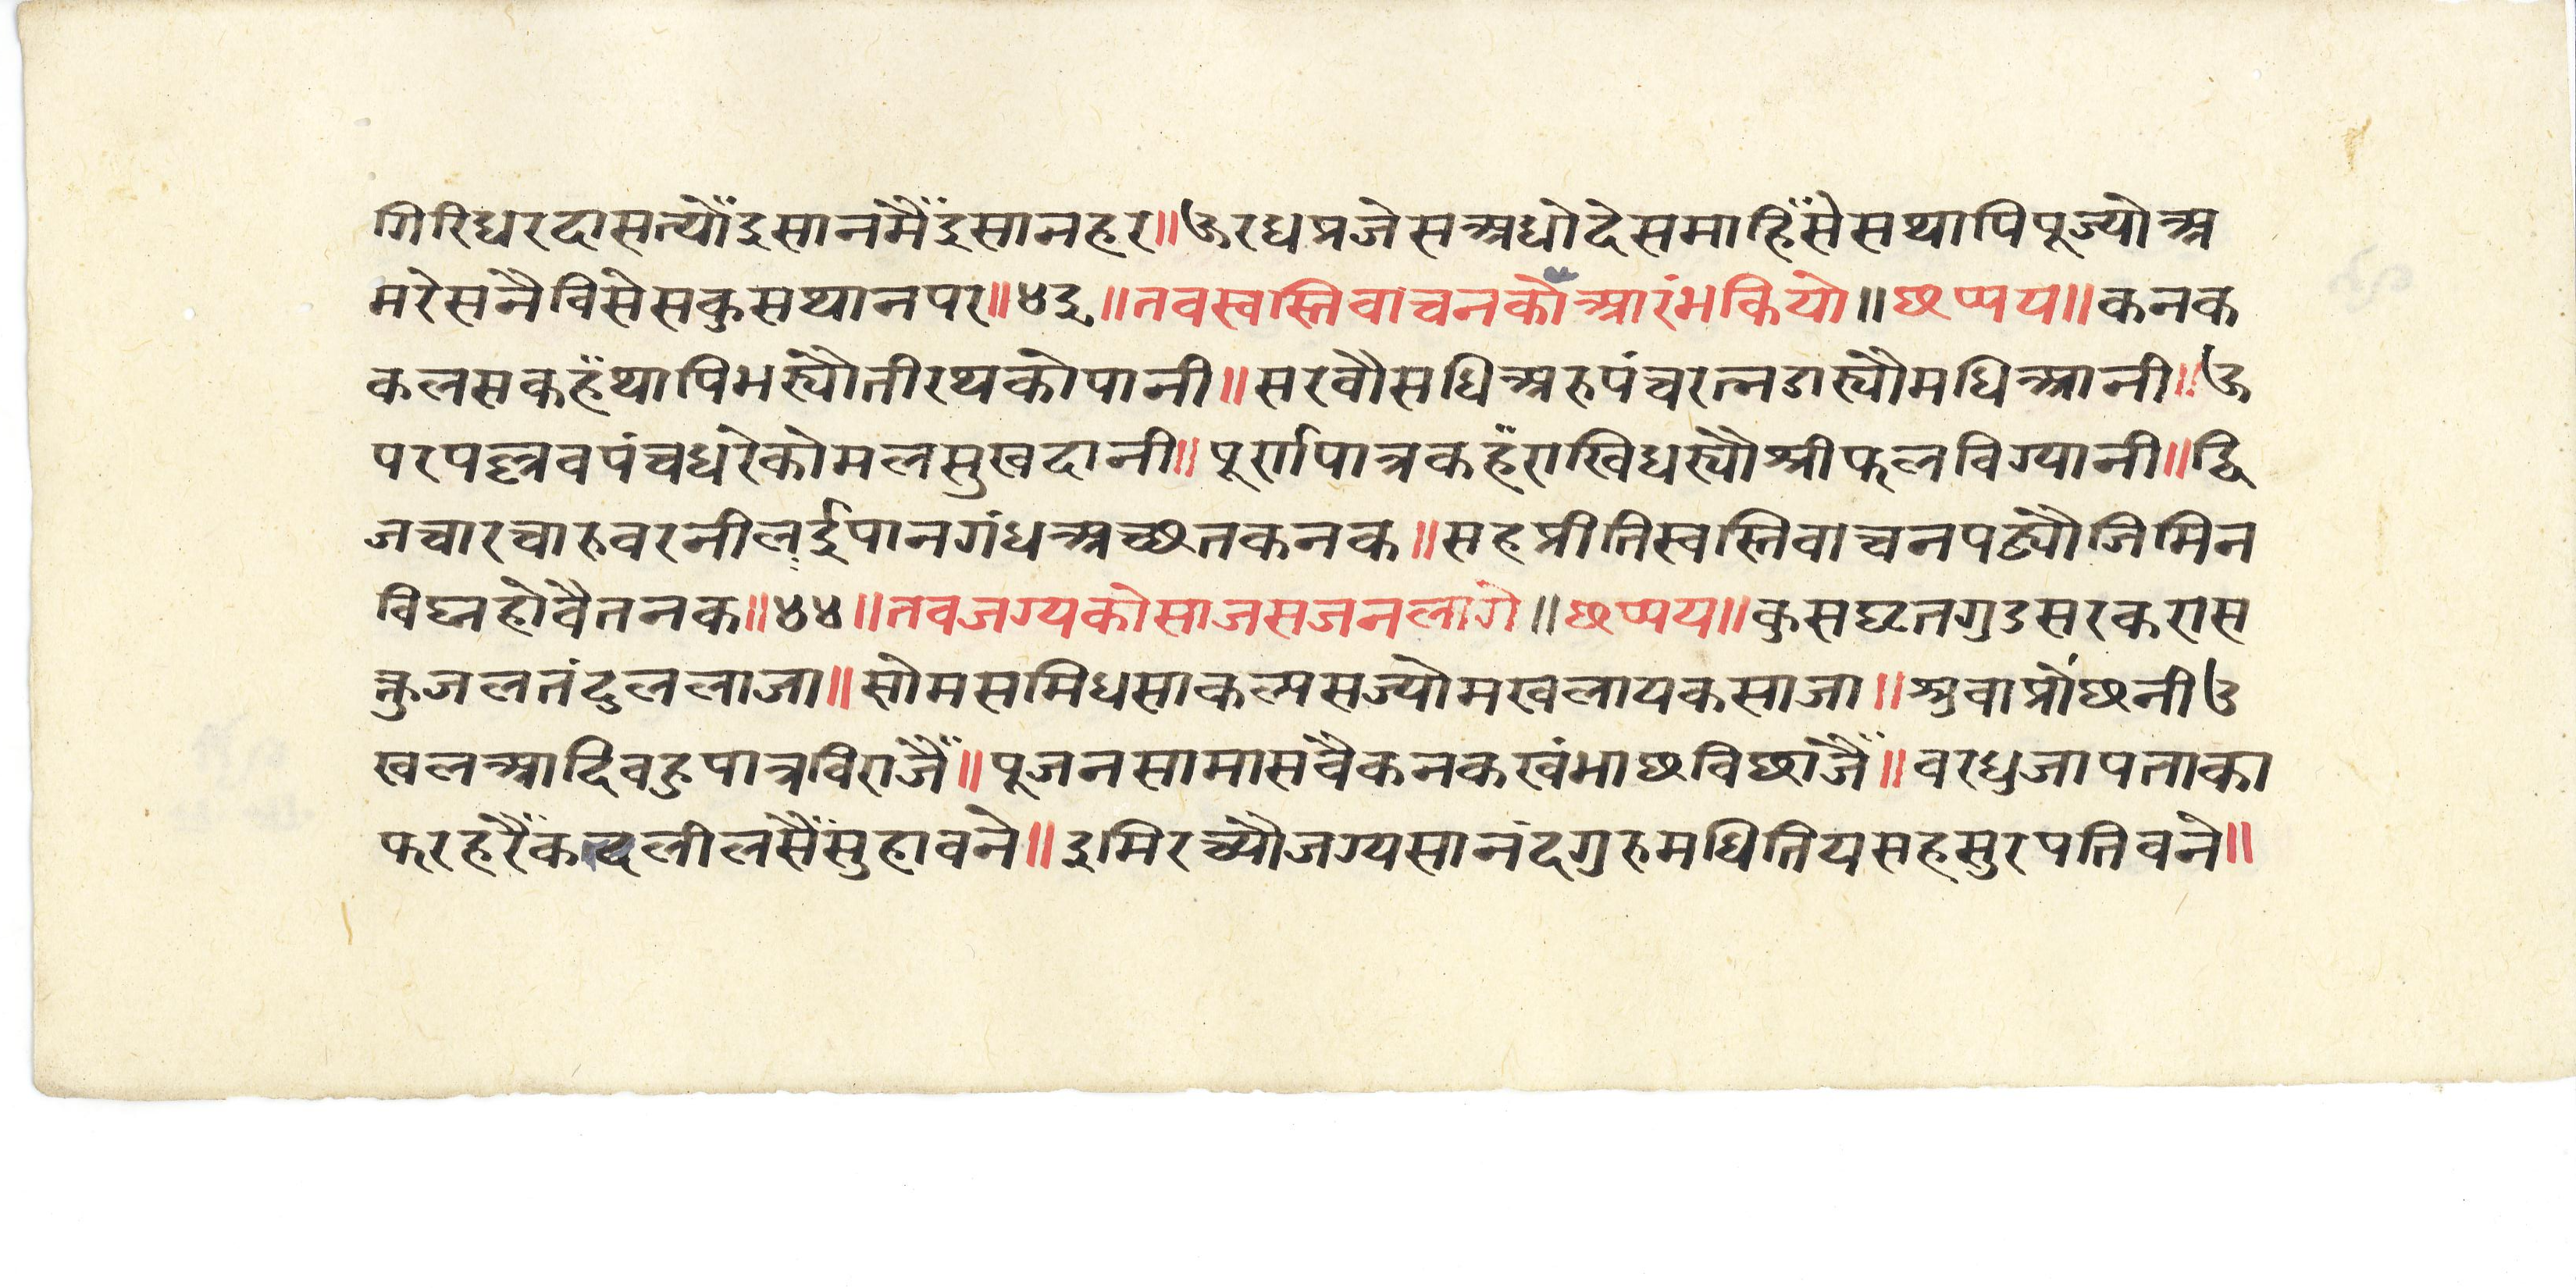 गिरिधरदासत्यौंइसानमैंइसानहर॥ऊरधप्रजेसअधोदेसमाहिंसेसथापिपूज्योअ
मरेसनैविसेसकुसथानपर॥४३॥तवस्वस्तिवाचनकोआरंभकियो॥छप्पय॥कनक
कलसकहँथापिभर्यौतीरथकोपानी॥सरवौसधिअरुपंचरत्नडार्यौमधिआनी॥ऊ
परपल्लवपंचधरेकोमलसुखदानी॥पूर्णपात्रकहँराखिधर्यौश्रीफलविग्यानी॥द्वि
जचारचारुवरनीलईपानगंधअच्छतकनक॥सहप्रीतिस्वस्तिवाचनपढ्यौजिमिन
विघ्नहोवैतनक॥४४॥तवजग्यकोसाजसजनलागे॥छप्पय॥कुसघृतगुडसरकरास
क्तुजलतंदुललाजा॥सोमसमिधसाकल्यसज्योमखलायकसाजा॥श्रुवाप्रोंछनीउ
खलआदिवहुपात्रविराजैं॥पूजनसामासवैकनकखंभाछविछाजैं॥वरधुजापताका
फरहरैंकदलीलसैंसुहावने॥इमिरच्यौजग्यसानंदगुरुमधितियसहसुरपतिवने॥